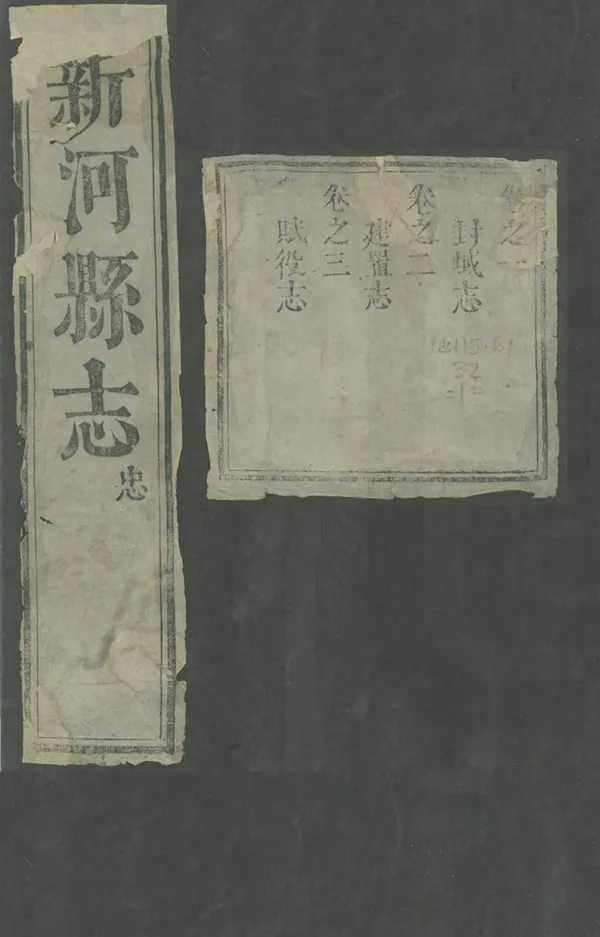 新河縣志
忠
卷之一
封域志
卷之二
建置志
卷之三
賦役志
115.61
32